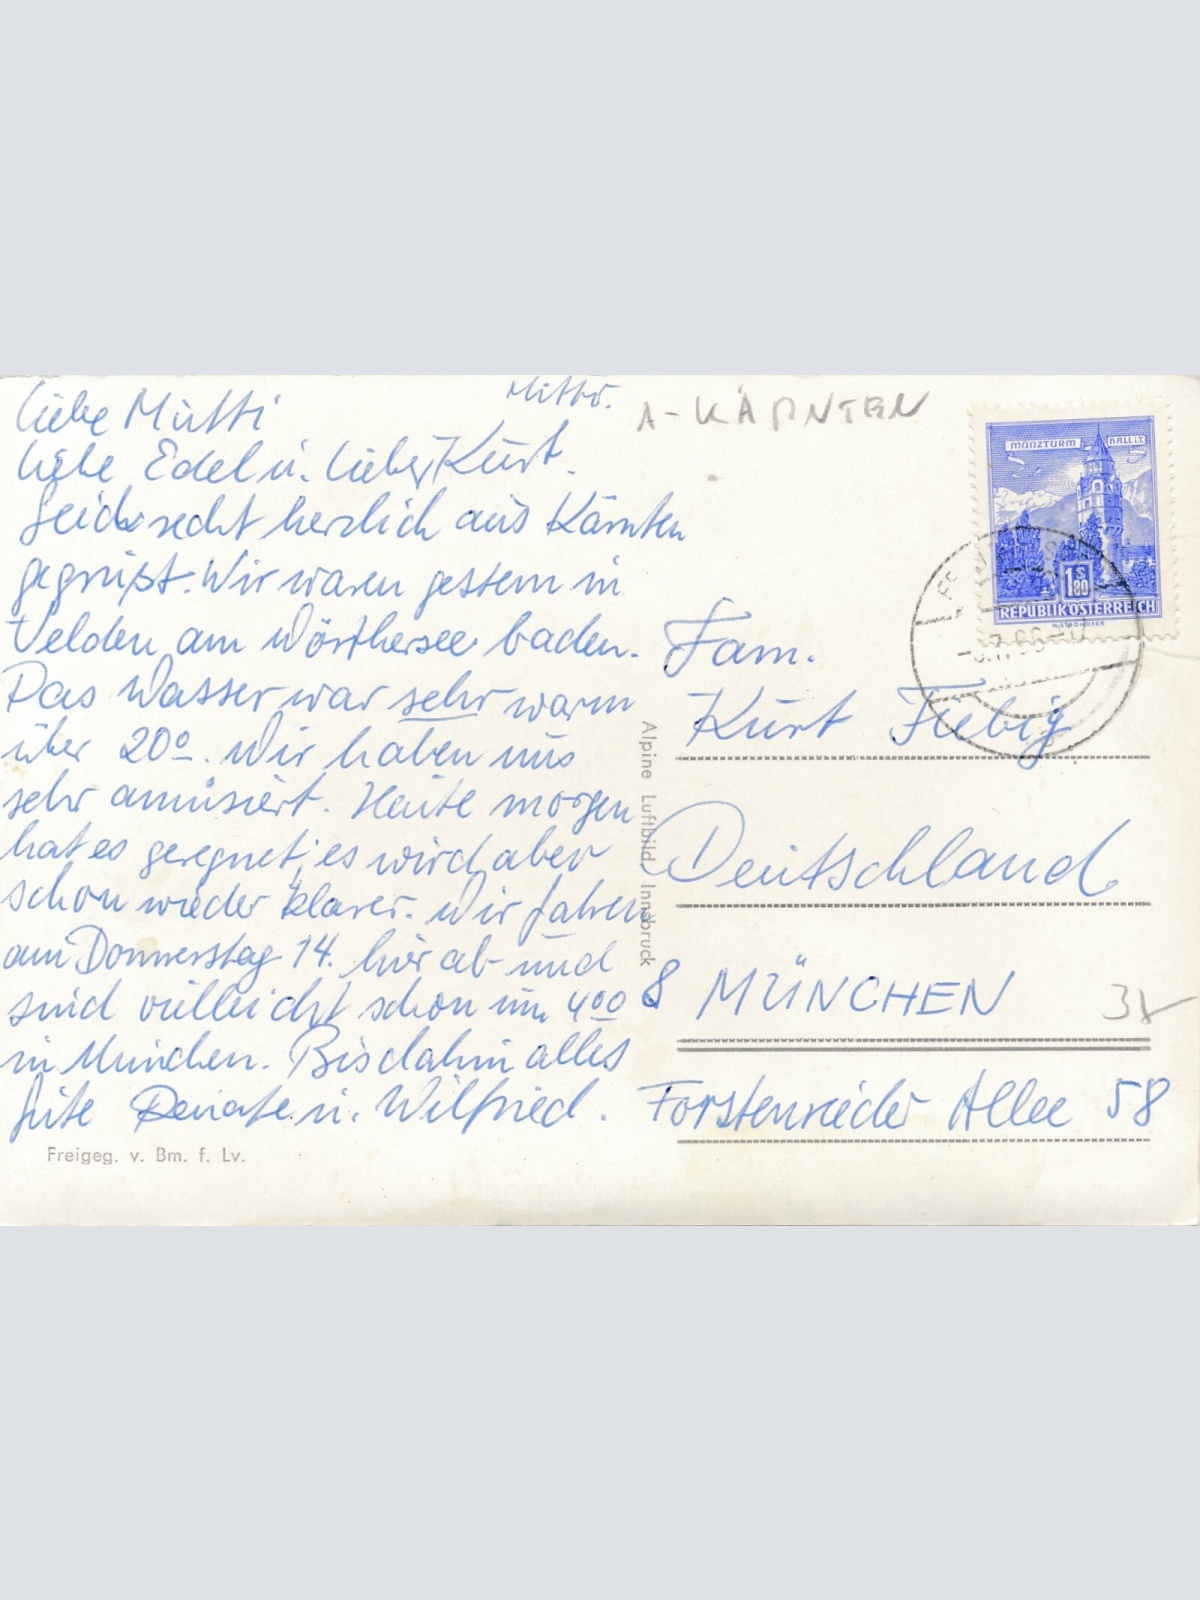 Mittw.
Liebe Mutti
Liebe Edel u. lieber Kurt.
Seid recht herzlich aus Kärnten
gegrüßt. Wir waren gestern in
Velden am Wörthersee baden.
Das Wasser war sehr warm
über 20º. Wir haben uns
sehr amüsiert. Heute morgen
hat es geregnet, es wird aber
schon wieder klarer. Wir fahren
am Donnerstag 14. hier ab und
sind vielleicht schon um 4oo
in München. Bis dahin alles
Gute Renate u. Wilfried.
Freigeg. v. Bm. f. Lv.
Alpine Luftbild, Innsbruck
A-KÄRNTEN
MÜNZTURM HALL i.T.
1 S 80
REPUBLIK ÖSTERREICH
Fam.
Kurt Fiebig
Deutschland
8 MÜNCHEN
Forstenrieder Allee 58